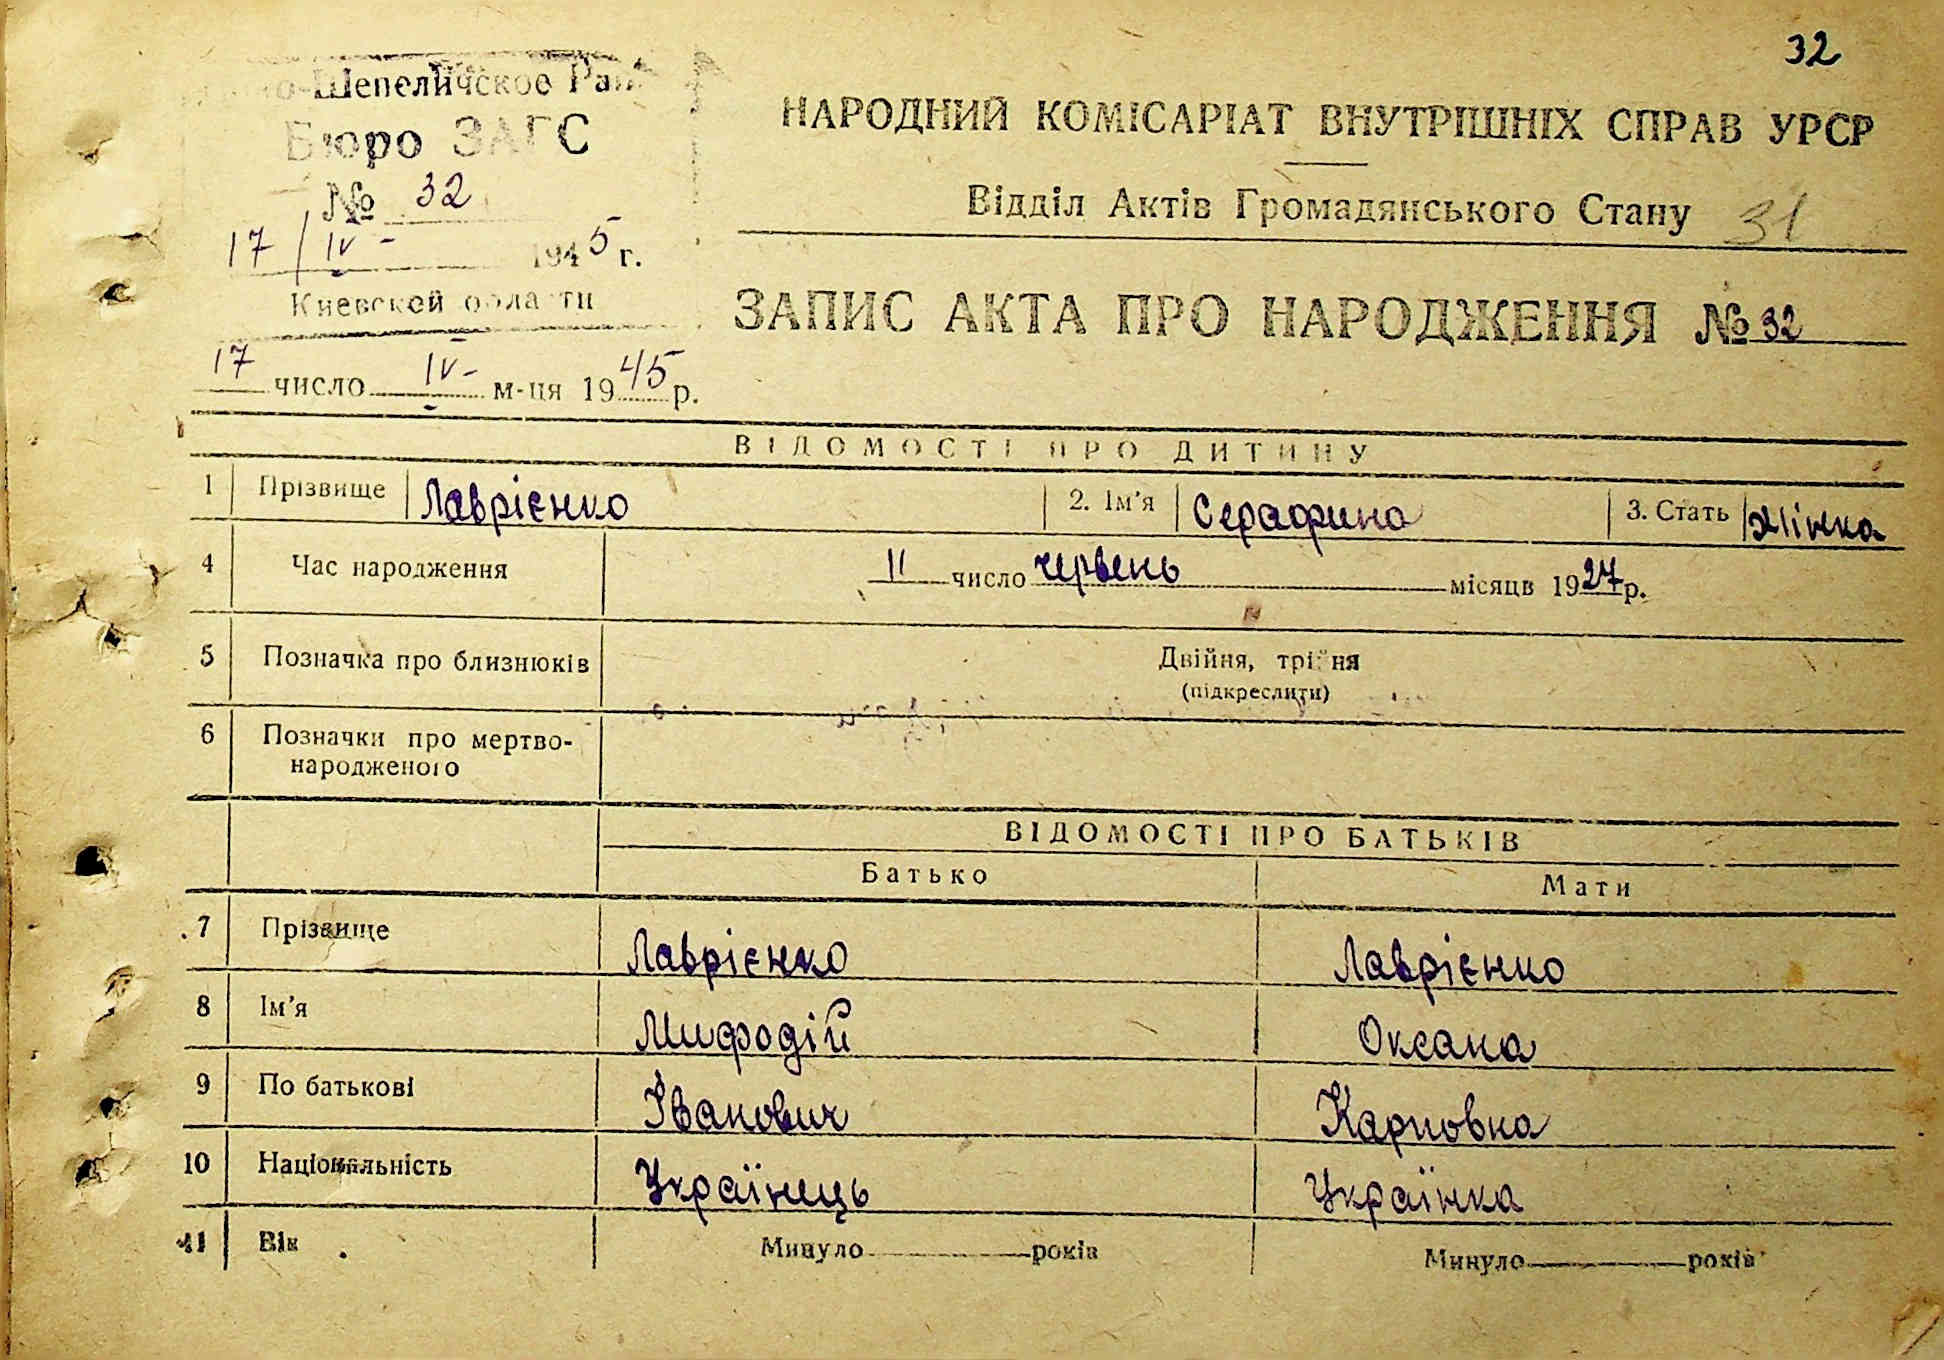 32
-Шепеличское
Бюро ЗАГС
№ 32
17/IV - 1945 г.
Киевской области
НАРОДНИЙ КОМІСАРІАТ ВНУТРІШНІХ СПРАВ УРСР
Відділ Актів Громадянського Стану 31
ЗАПИС АКТА ПРО НАРОДЖЕННЯ № 32
17 число IV- м-ця 1945 р.
ВІДОМОСТІ ПРО ДИТИНУ
1 Прізвище Лаврієнко 2. Ім'я Серафина 3. Стать жінка
4 Час народження 11 число червень місяця 1927 р.
5 Позначка про близнюків Двійня, трійня
(підкреслити)
6 Позначки про мертво-
народженого
ВІДОМОСТІ ПРО БАТЬКІВ
Батько Мати
7 Прізвище Лаврієнко Лаврієнко
8 Ім'я Мифодій Оксана
9 По батькові Іванович Карповна
10 Національність Українець Українка
11 Вік Минуло років Минуло років